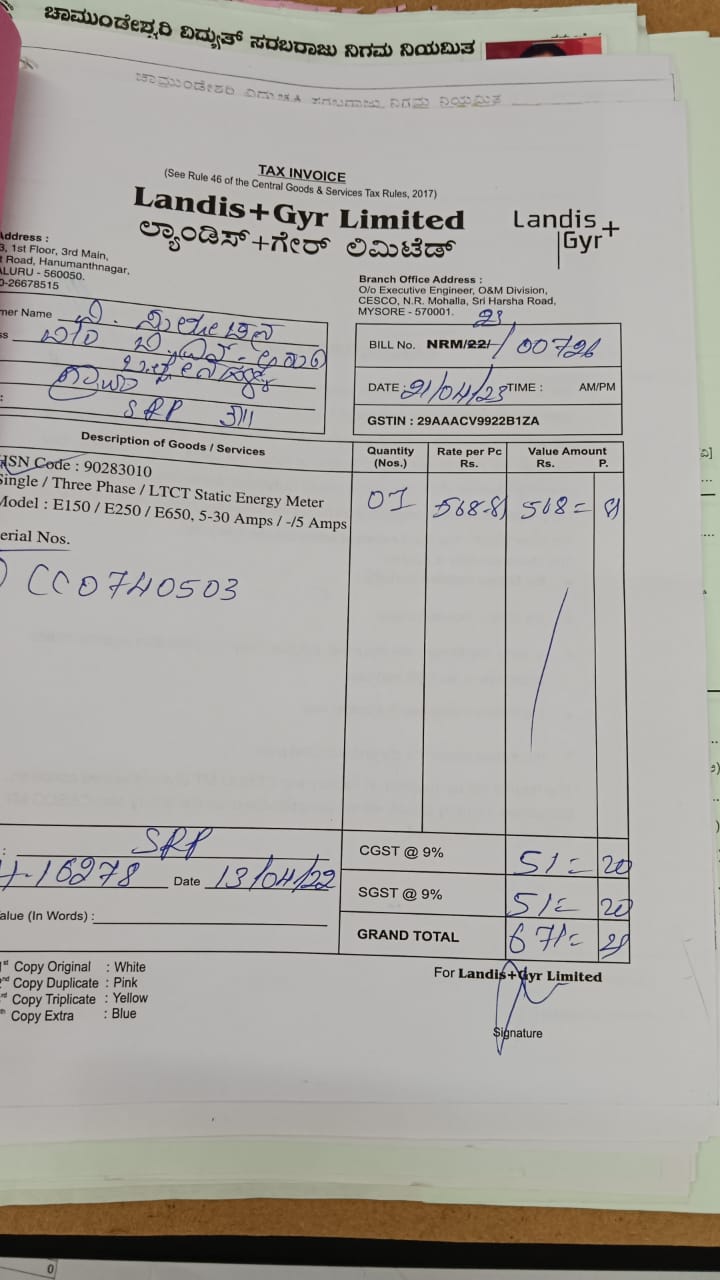 ಚಾಮುಂಡೇಶ್ವರಿ ವಿದ್ಯುತ್ ಸರಬರಾಜು ನಿಗಮ ನಿಯಮಿತ
TAX INVOICE
(See Rule 46 of the Central Goods & Services Tax Rules, 2017)
Landis+Gyr Limited
ಲ್ಯಾಂಡಿಸ್+ಗೇರ್ ಲಿಮಿಟೆಡ್
Landis+
Gyr
Address :
3, 1st Floor, 3rd Main,
Road, Hanumanthnagar,
ALURU - 560050.
0-26678515
Branch Office Address :
O/o Executive Engineer, O&M Division,
CESCO, N.R. Mohalla, Sri Harsha Road,
MYSORE - 570001.
mer Name
ss
SRP
BILL No. NRM/22/ 23/00726
DATE : 21/04/23 TIME : AM/PM
GSTIN : 29AAACV9922B1ZA
Description of Goods / Services
Quantity (Nos.)
Rate per Pc Rs.
Value Amount Rs. P.
HSN Code : 90283010
Single / Three Phase / LTCT Static Energy Meter
Model : E150 / E250 / E650, 5-30 Amps / -/5 Amps
01 568-81 568= 81
erial Nos.
CC0740503
SRP
16278 Date 13/04/22
alue (In Words) :
CGST @ 9% 51= 20
SGST @ 9% 51= 20
GRAND TOTAL 671= 21
1st Copy Original : White
nd Copy Duplicate : Pink
rd Copy Triplicate : Yellow
th Copy Extra : Blue
For Landis+Gyr Limited
Signature